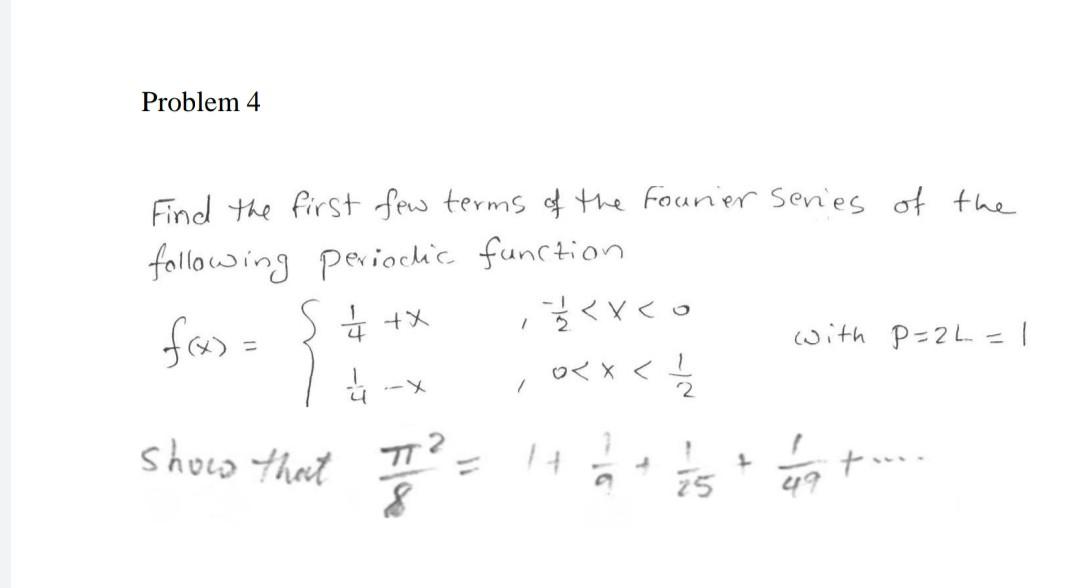 Problem 4
Find the first few terms of the Fourier Series of the
following periodic function
f(x) = { 1/4 + x , -1/2 < x < 0
1/4 - x , 0 < x < 1/2 with P = 2L = 1
show that π²/8 = 1 + 1/9 + 1/25 + 1/49 + .....